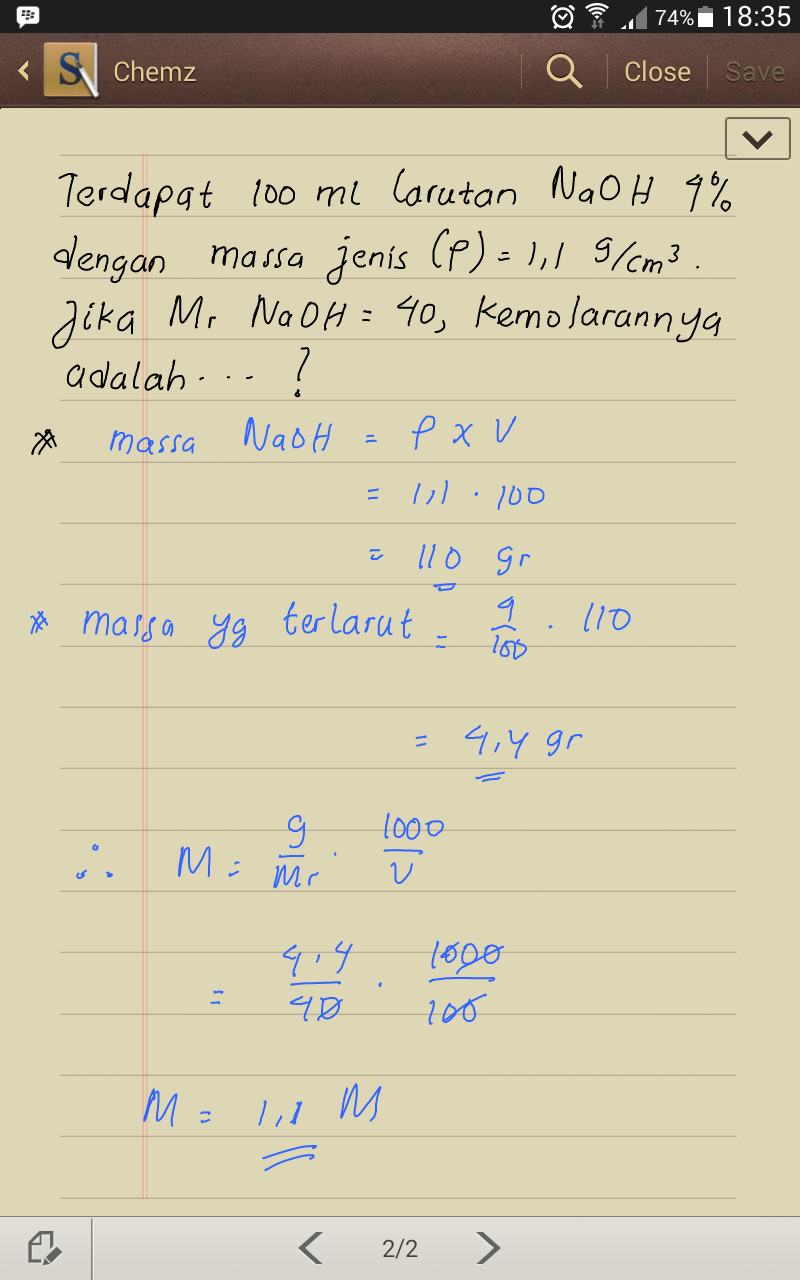 74% 18:35
Chemz Close Save
Terdapat 100 ml larutan NaOH 4%
dengan massa jenis (ρ) = 1,1 g/cm³.
Jika Mr NaOH = 40, kemolarannya
adalah ... ?
* massa NaOH = ρ x V
= 1,1 . 100
= 110 gr
* massa yg terlarut = 4/100 . 110
= 4,4 gr
∴ M = g/Mr . 1000/V
= 4,4/40 . 1000/100
M = 1,1 M
2/2